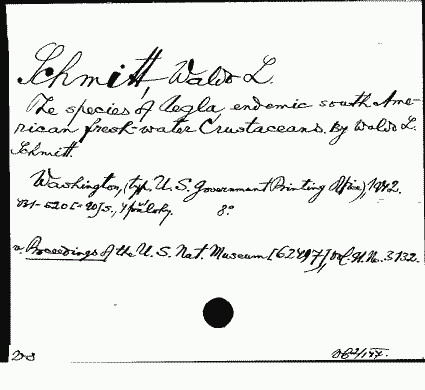 Schmitt, Waldo L.
The species of Aegla, endemic south Ame-
rican fresh-water Crustaceans. By Waldo L.
Schmitt.
Washington, (typ. U. S. Government Printing Office), 1942.
431-520 [=90] s., 4 přílohy. 8°
v. Proceedings of the U. S. Nat. Museum [62497], vol. 91. No. 3132.